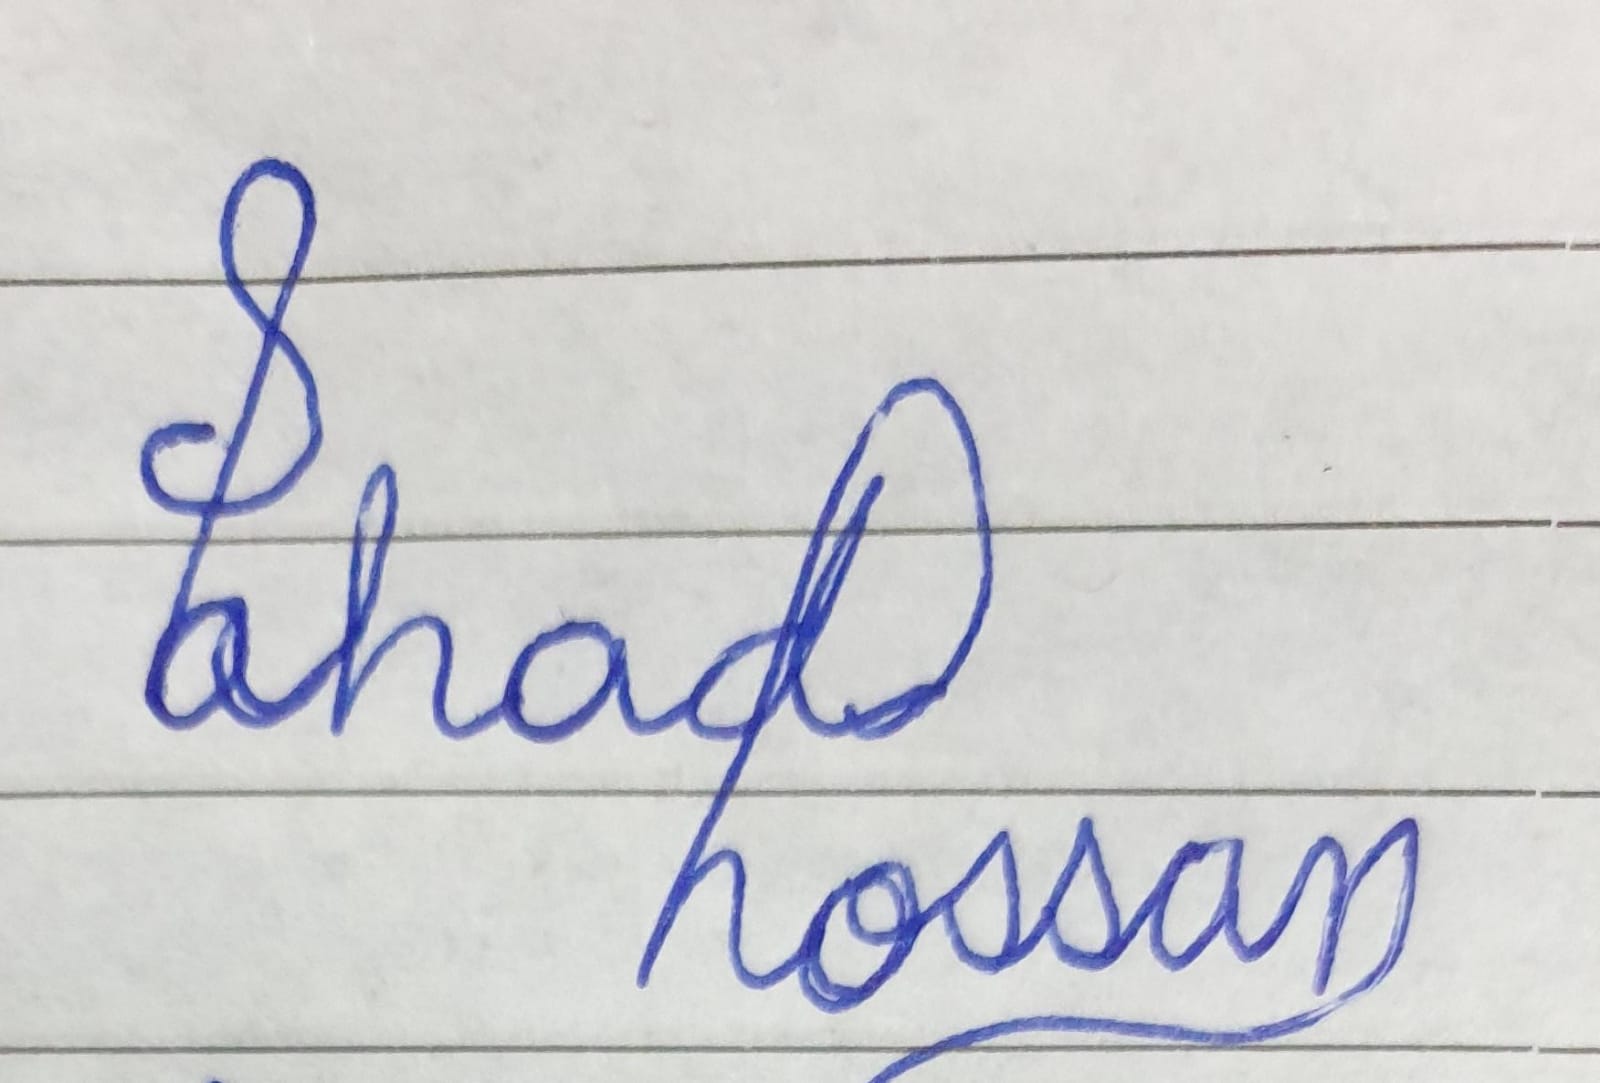 Sahad
hossan